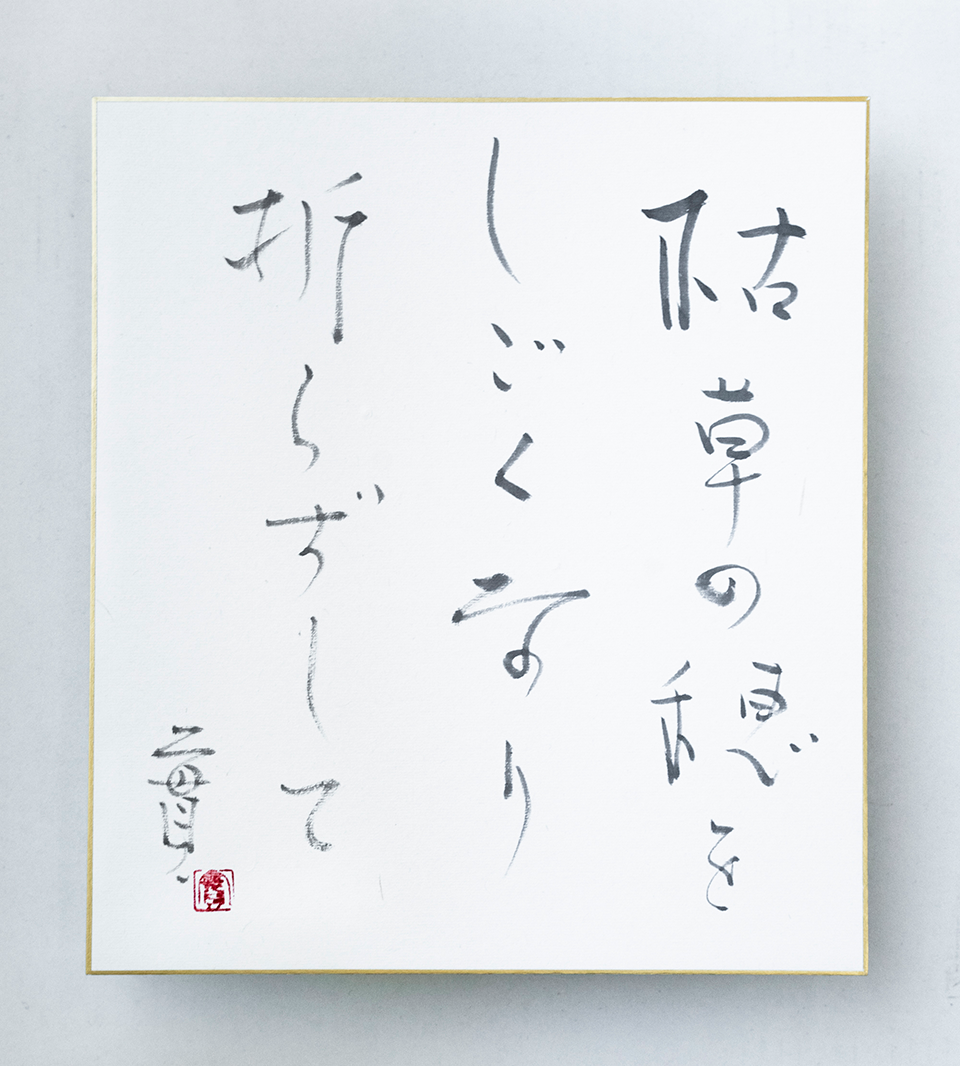 枯草の穂を
しごくなり
折らずして